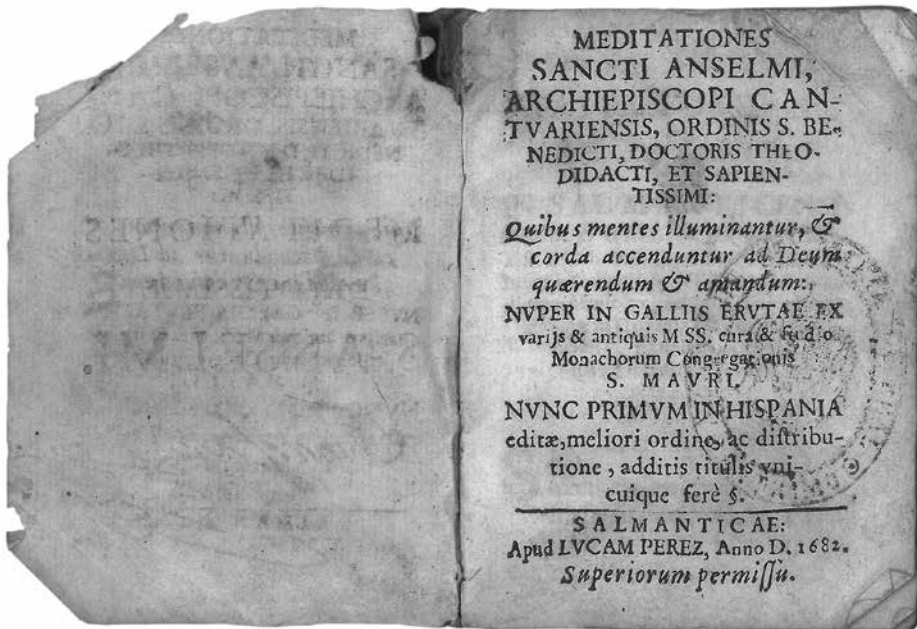 MEDITATIONES
SANCTI ANSELMI,
ARCHIEPISCOPI CAN-
TVARIENSIS, ORDINIS S. BE-
NEDICTI, DOCTORIS THEO-
DIDACTI, ET SAPIEN-
TISSIMI:
Quibus mentes illuminantur, &
corda accenduntur ad Deum
quærendum & amandum:
NVPER IN GALLIIS ERVTAE EX
varijs & antiquis MSS. cura & studio
Monachorum Congregationis
S. MAVRI.
NVNC PRIMVM IN HISPANIA
editæ, meliori ordine, ac distribu-
tione, additis titulis vni-
cuique ferè §.
SALMANTICAE:
Apud LVCAM PEREZ, Anno D. 1682.
Superiorum permissu.